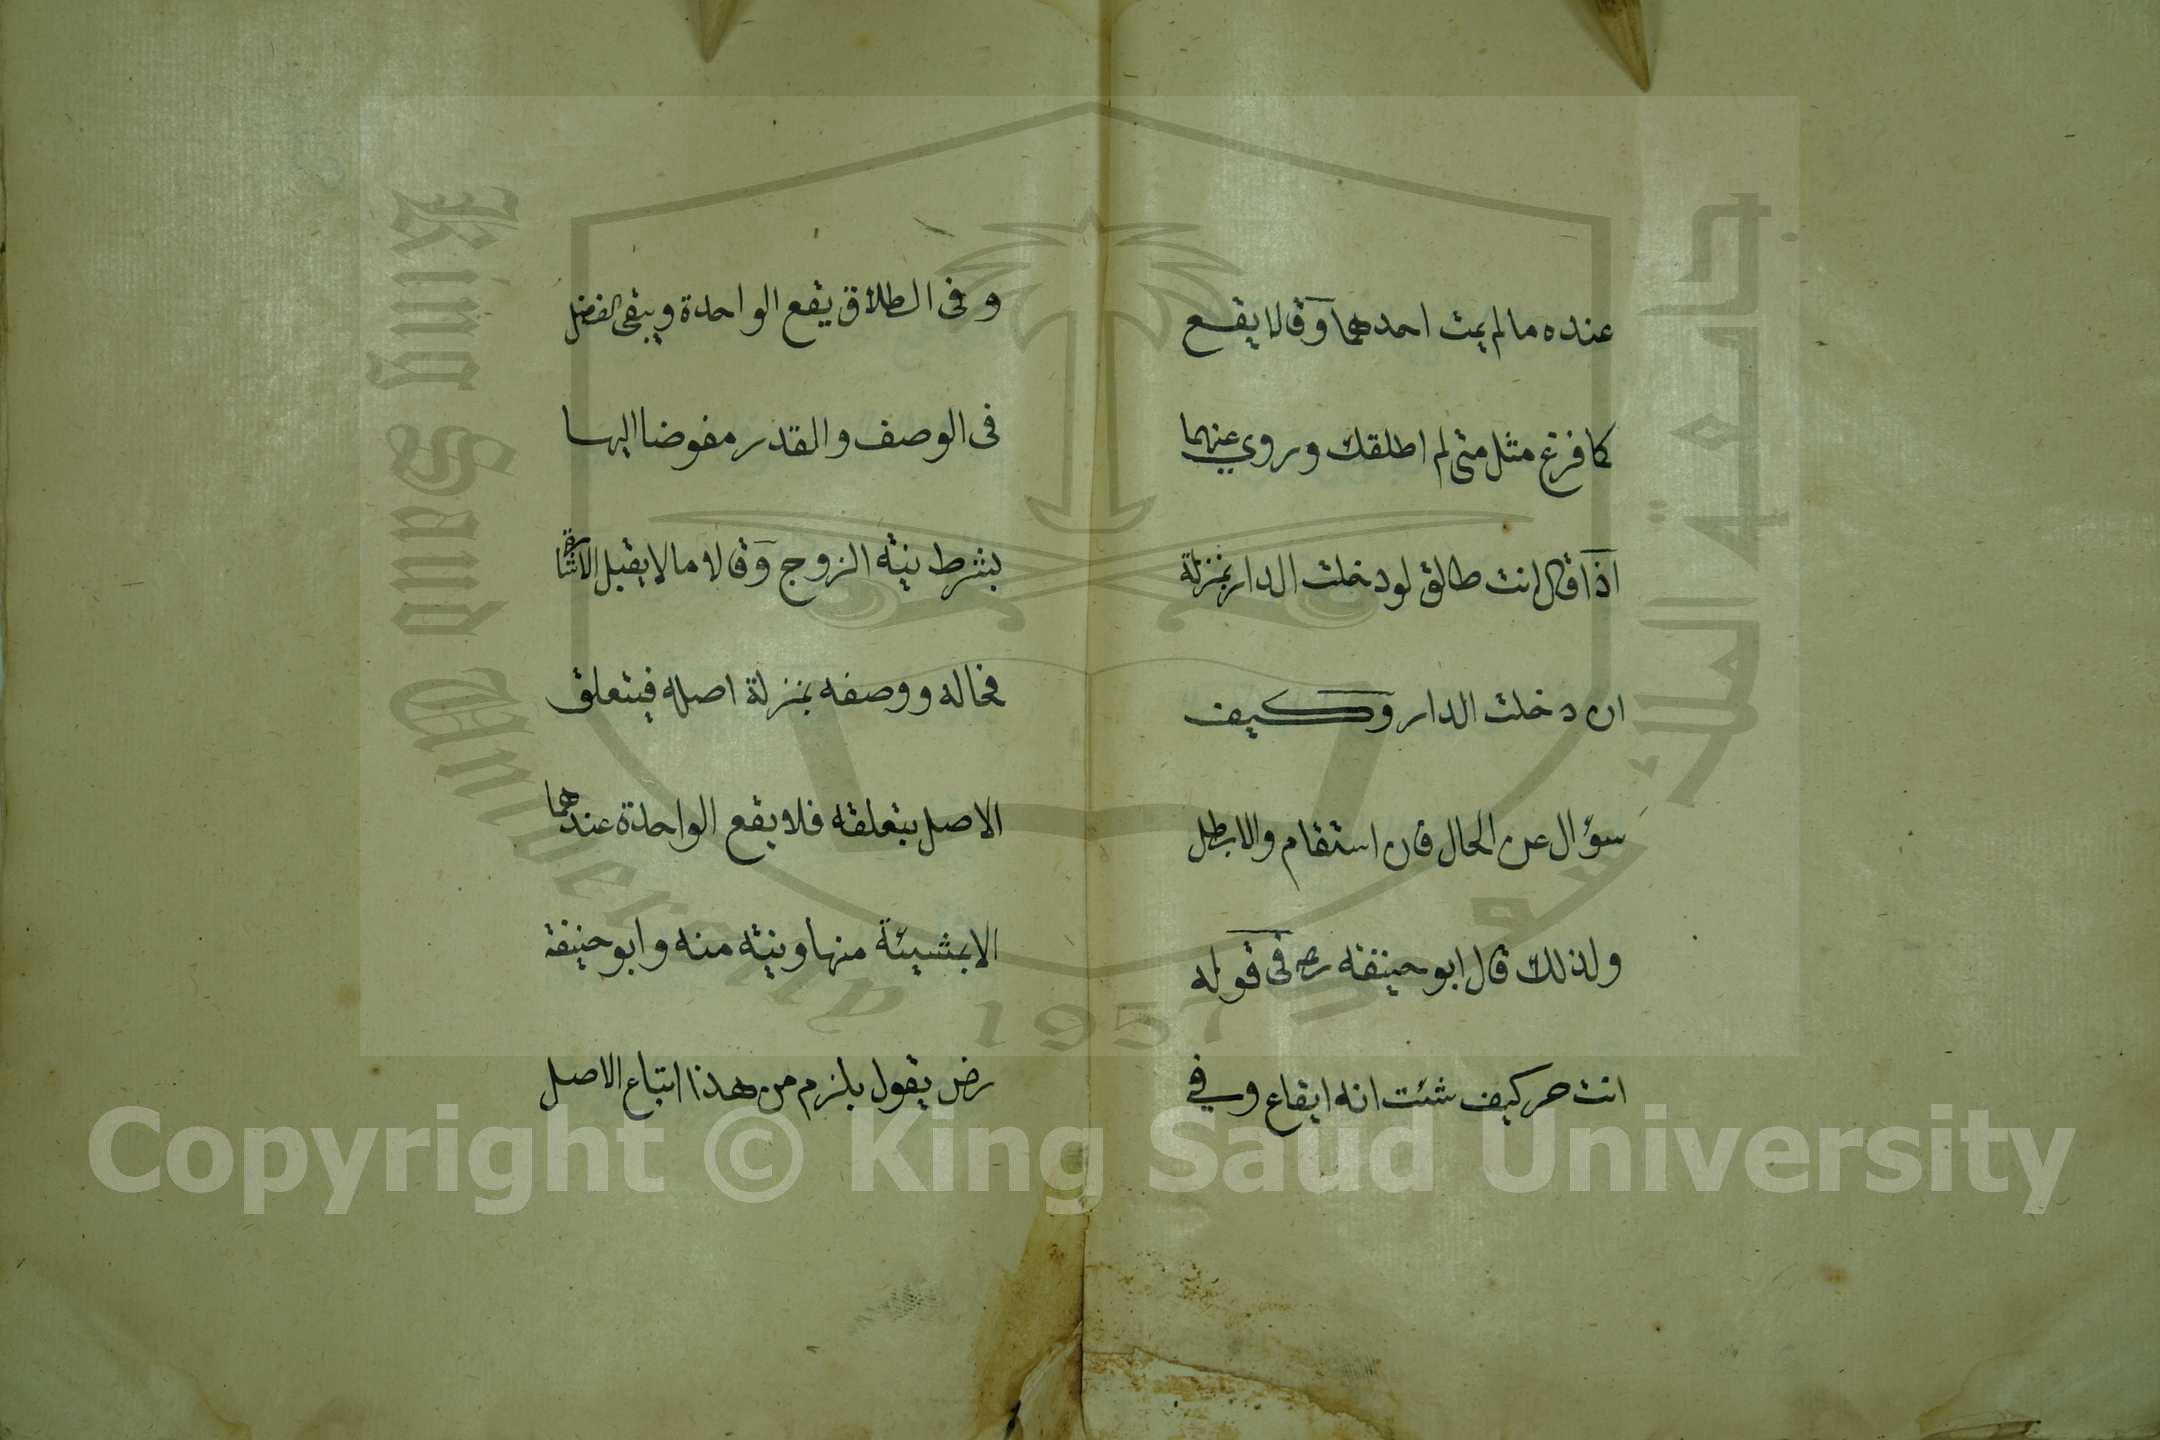 عنده ما لم يمت احدهما وقالا يقع
كما فرغ مثل متى لم اطلقك وروي عنهما
اذا قال انت طالق لو دخلت الدار بمنزلة
ان دخلت الدار وكيف
سؤال عن الحال فان استقام والا بطل
ولذلك قال ابو حنيفه رح فى قوله
انت حر كيف شئت انه ايقاع وفي
و فى الطلاق يقع الواحدة ويبقى الفضل
فى الوصف والقدر مفوضا اليها
بشرط نية الزوج وقالا ما لا يقبل الاشارة
فحاله ووصفه بمنزلة اصله فيتعلق
الاصل بتعلقه فلا يقع الواحدة عندهما
الا بمشيئة منها ونية منه وابو حنيفة
رض يقول يلزم من هذا اتباع الاصل
King Saud University
جامعة الملك سعود
1957
Copyright © King Saud University